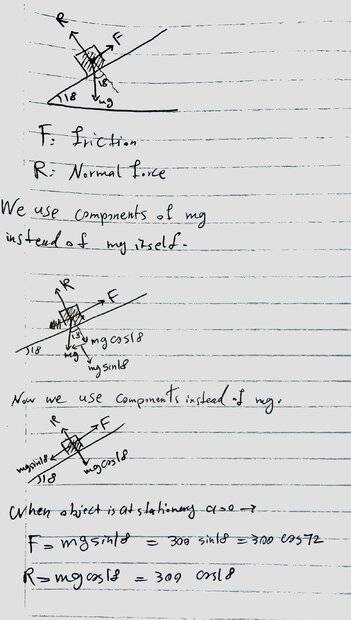 R
F
18
18
mg
F: friction
R: Normal force
We use components of mg
instead of mg itself.
R
F
18
18
mg
mg cos18
mg sin18
Now we use components instead of mg.
R
F
mg sin18
mg cos18
18
When object is at stationary a=0 →
F = mg sin18 = 300 sin18 = 300 cos72
R = mg cos18 = 300 cos18